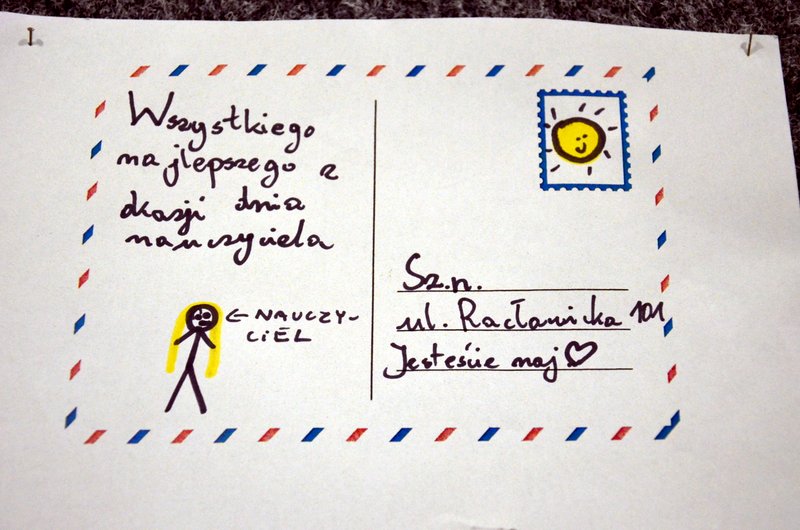 Wszystkiego
najlepszego z
okazji dnia
nauczyciela
← NAUCZY-
CIEL
Sz.n.
ul. Racławicka 101
Jesteście naj ♡